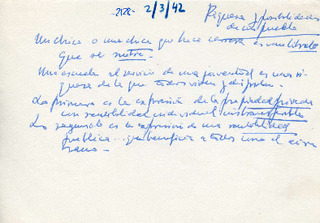 -2128-
2/3/42
Riqueza y posibilidades
de un pueblo
Un chico o una chica que hace carrera es un
que se
Una escuela al servicio de una juventud es una ri-
queza de la que todos viven y disfrutan.
La primera es la expresión de la propiedad privada
con rentabilidad individual
La segunda es la expresión de una rentabilidad
pública... que beneficia a todos como el